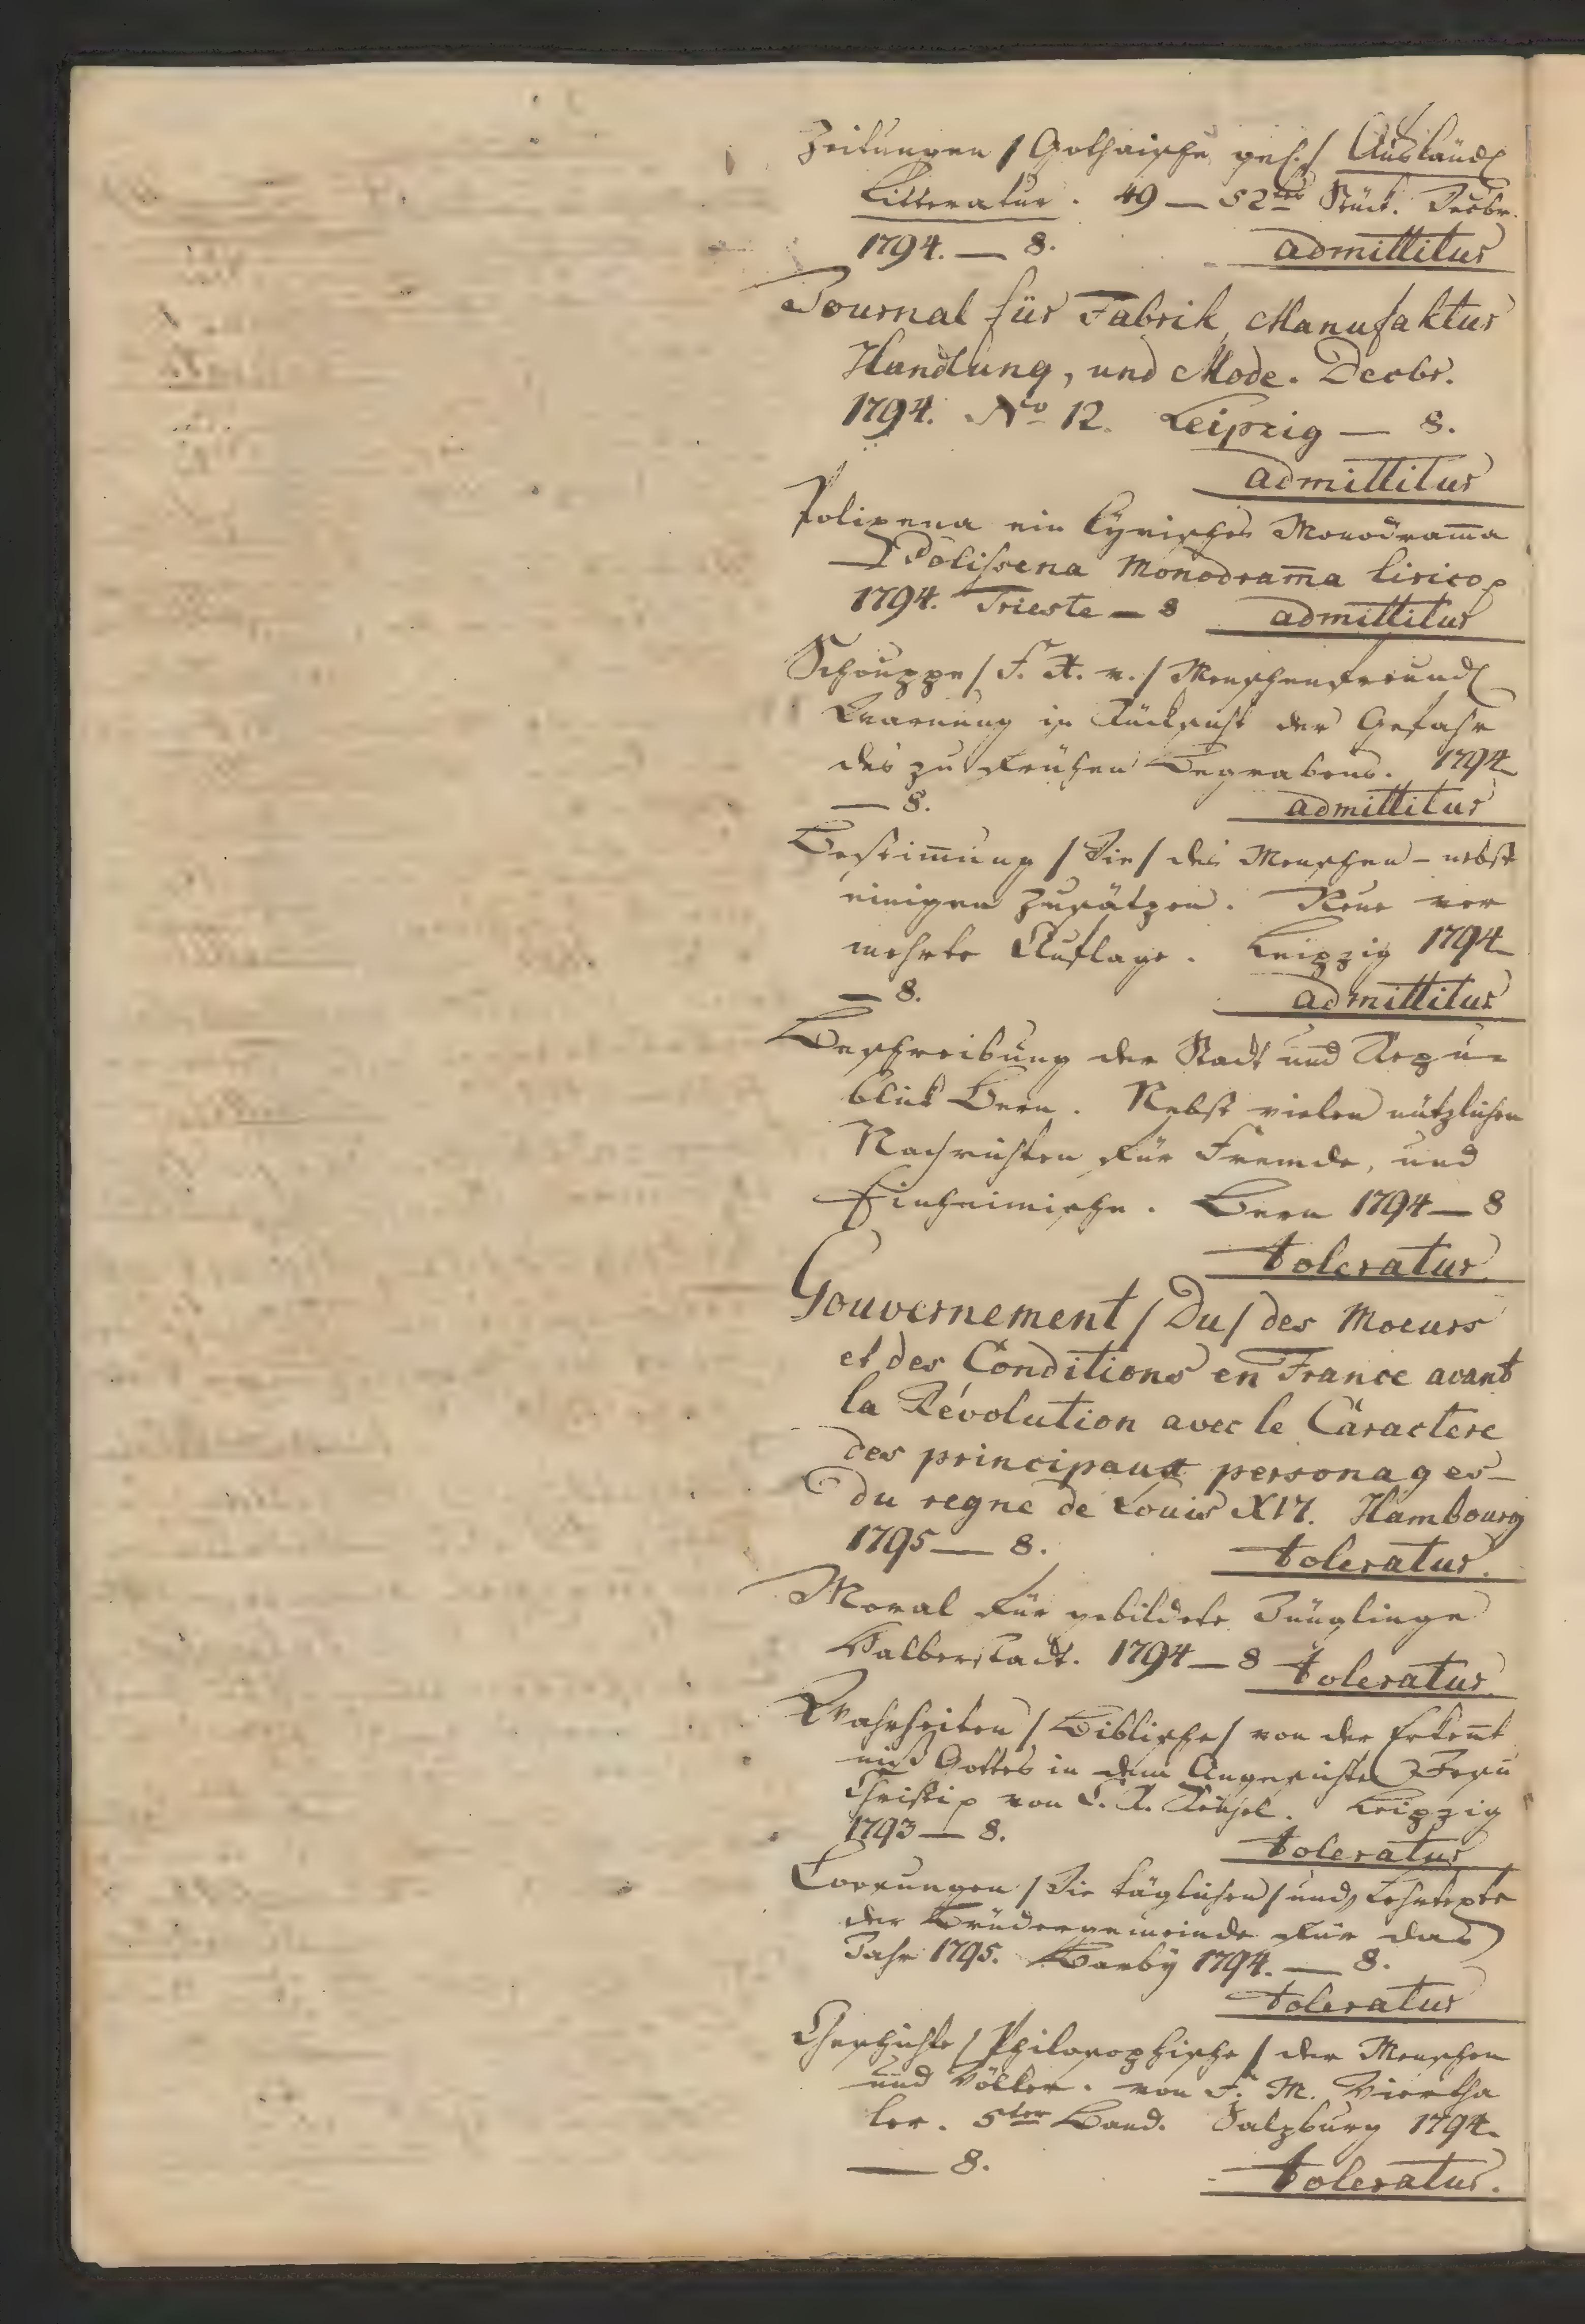 Zeitungen / Gothaische gel. / Ausländ.
Litteratur. 49 — 52tes Stück. Decbr.
1794. — 8. admittitur
Journal für Fabrik, Manufaktur
Handlung, und Mode. Decbr.
1794. No 12. Leipzig — 8.
admittitur
Polixena ein lyrisches Monodram̄a
— Polissena Monodram̄a lirico
1794. Trieste — 8 admittitur
Schouppe / F. A. v. / Menschenfreundl
Warnung in Rücksicht der Gefahr
des zu frühen Begrabens. 1794
— 8. admittitur
Bestim̄ung / Die / des Menschen — nebst
einigen Zusätzen. Neue ver
mehrte Auflage. Leipzig 1794
— 8. admittitur
Beschreibung der Stadt und Repu-
blick Bern. Nebst vielen nützlichen
Nachrichten für Fremde, und
Einheimische. Bern 1794 — 8
toleratur
Gouvernement / Du / des Moeurs
et des Conditions en France avant
la Révolution avec le Caractere
des principaux personages
du regne de Louis XVI. Hambourg
1795 — 8. toleratur.
Moral für gebildete Jünglinge
Halberstadt. 1794 — 8 toleratur.
Wahrheiten / Biblische / von der Erken̄t
niß Gottes in dem Angesichte Jesu
Christi von C. A. Leipzig
1793 — 8. toleratur
Loosungen / Die täglichen / und Lehrtexte
der Brüdergemeinde für das
Jahr 1795. Barby 1794. — 8.
toleratur
Geschichte / Philosophische / der Menschen
und Völker. von F. M. Viertha
ler. 5ter Band. Salzburg 1794.
— 8. toleratur.